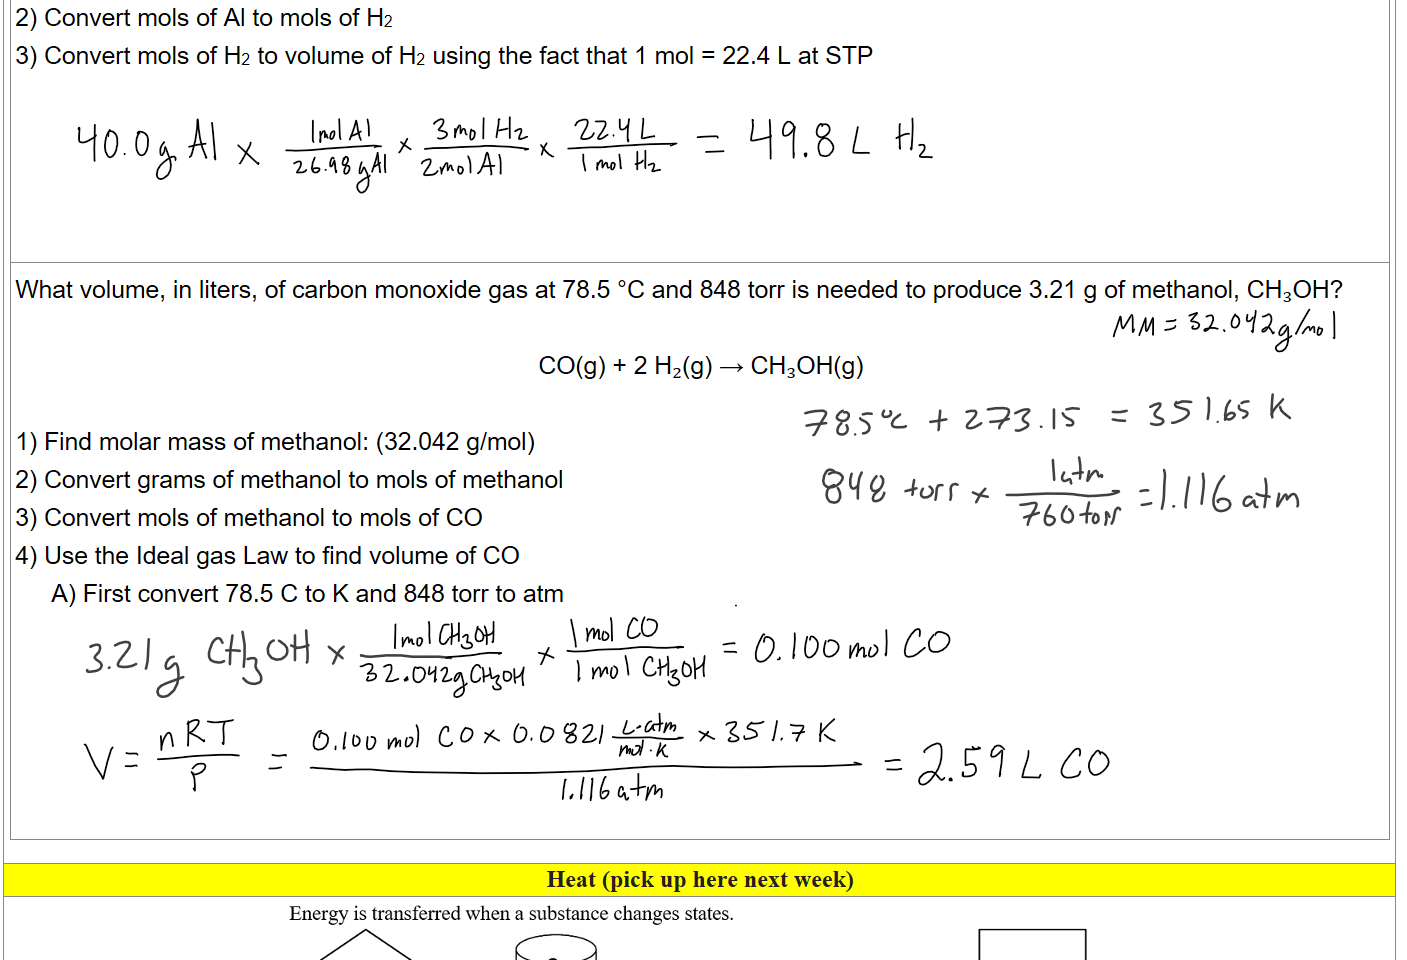 2) Convert mols of Al to mols of H2
3) Convert mols of H2 to volume of H2 using the fact that 1 mol = 22.4 L at STP
40.0g Al x 1mol Al / 26.98 g Al x 3 mol H2 / 2 mol Al x 22.4 L / 1 mol H2 = 49.8 L H2
What volume, in liters, of carbon monoxide gas at 78.5 °C and 848 torr is needed to produce 3.21 g of methanol, CH₃OH?
MM = 32.042g/mol
CO(g) + 2 H₂(g) → CH₃OH(g)
78.5°C + 273.15 = 351.65 K
1) Find molar mass of methanol: (32.042 g/mol)
2) Convert grams of methanol to mols of methanol
848 torr x 1atm / 760 torr = 1.116 atm
3) Convert mols of methanol to mols of CO
4) Use the Ideal gas Law to find volume of CO
A) First convert 78.5 C to K and 848 torr to atm
3.21g CH3OH x 1mol CH3OH / 32.042g CH3OH x 1 mol CO / 1 mol CH3OH = 0.100 mol CO
V = nRT / P = 0.100 mol CO x 0.0821 L·atm / mol·K x 351.7 K / 1.116 atm = 2.59 L CO
Heat (pick up here next week)
Energy is transferred when a substance changes states.